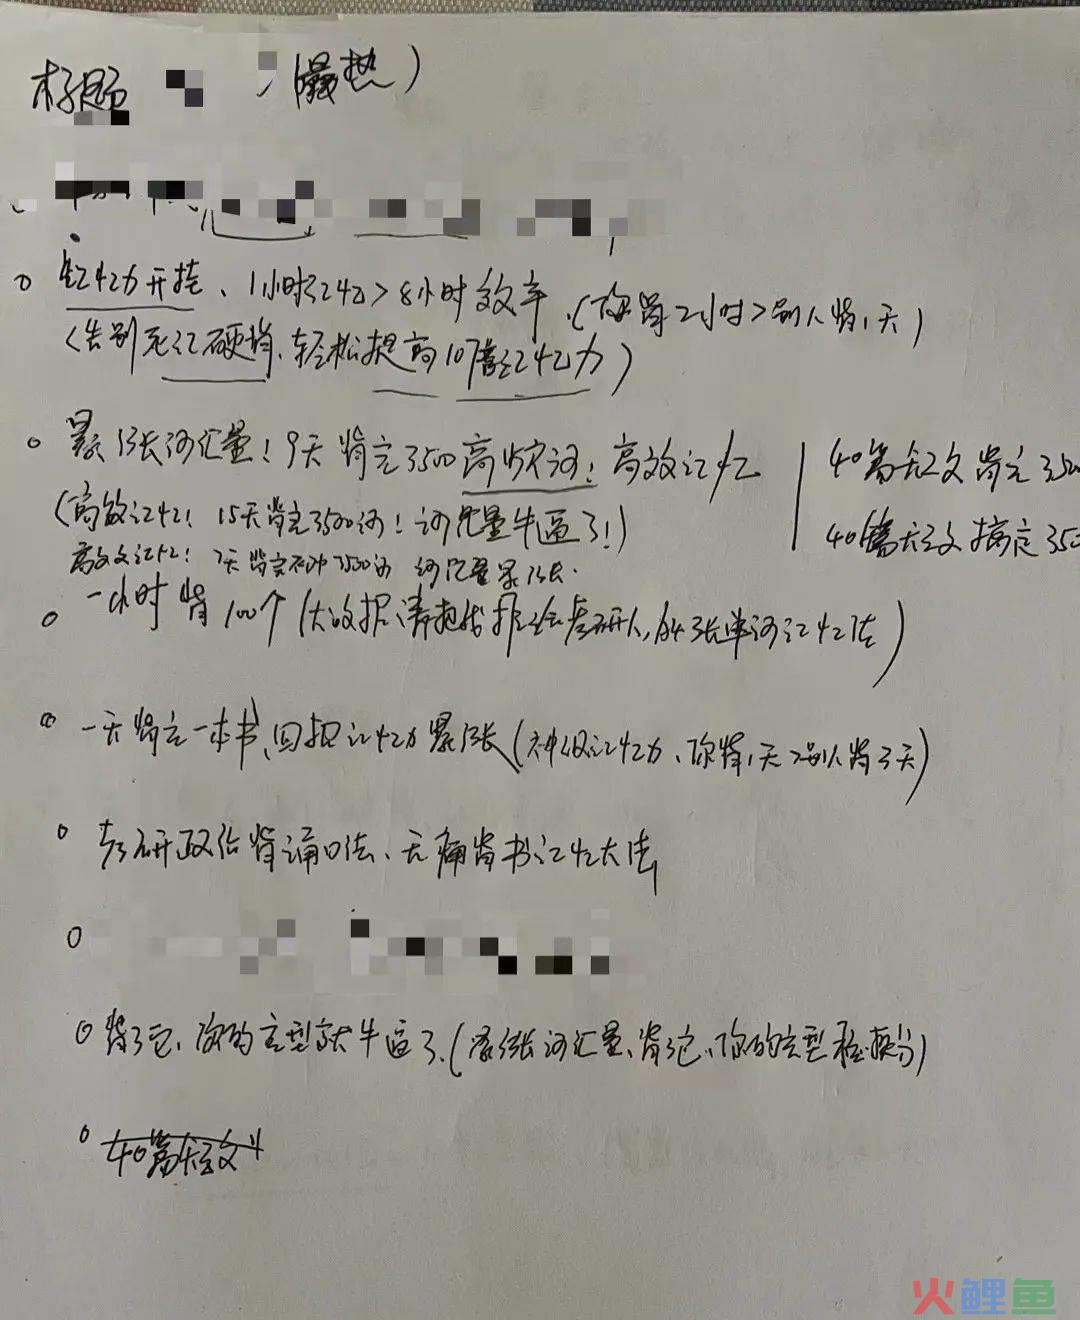 标题 （最热）
记忆力开挂、1小时记忆>8小时效率.（你背2小时>别人背1天）
（告别死记硬背、轻松提高10倍记忆力）
暴涨词汇量！9天背完3500高频词！高效记忆
40篇短文背完350
（高效记忆！15天背完3500词！词汇量牛逼了！）
40篇短文搞定350
高效记忆！7天背完 3500词 词汇量暴涨.
一小时背100个（大数据请把我推给考研人, 单词记忆法）
一天背完一本书、回报记忆力暴涨（神级记忆力、你背1天>别人背3天）
考研政治背诵口诀、无痛背书记忆大法
背了它、你的完型就牛逼了.（暴涨词汇量、背了它、你的完型 ）
40篇短文
火鲤鱼